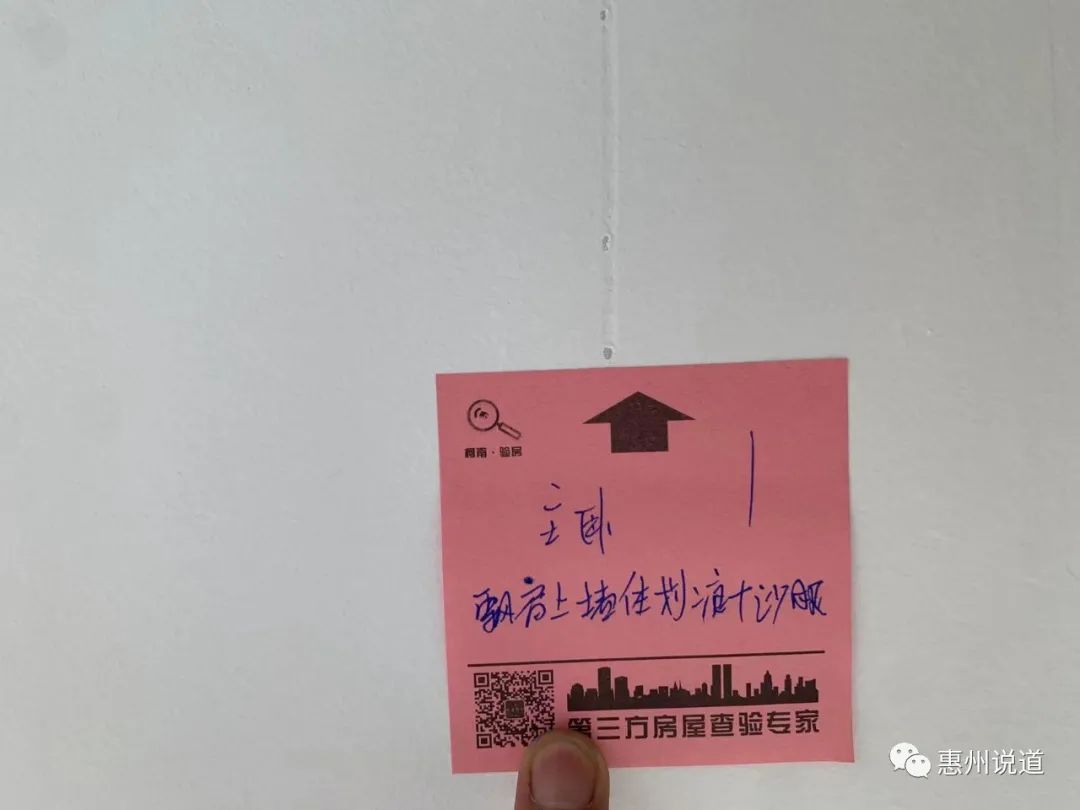 柯南·验房
主卧
飘窗上墙体划痕+沙眼
第三方房屋查验专家
惠州说道